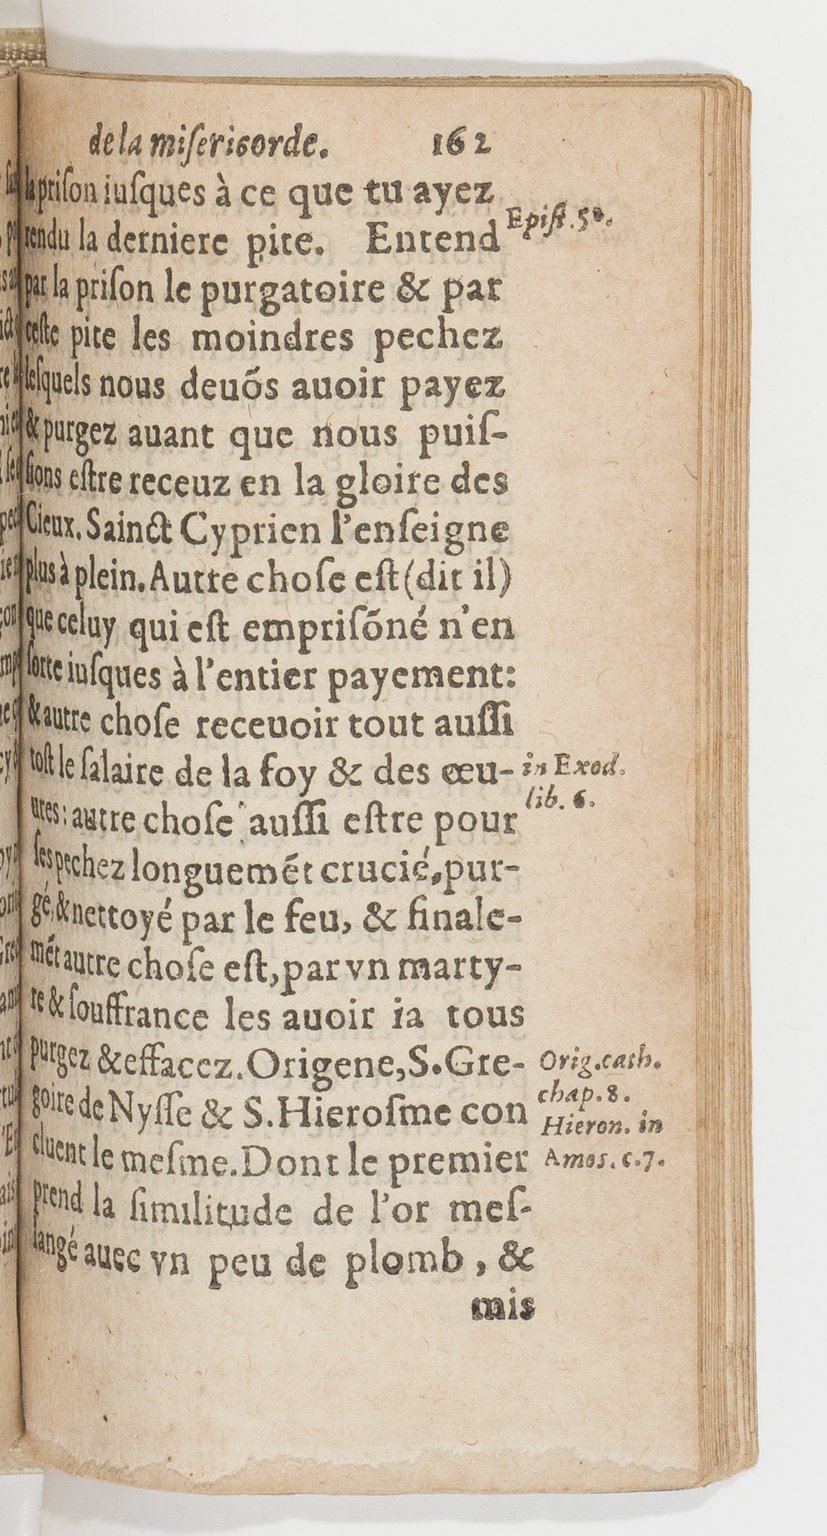 de la miſericorde. 162
la priſon iuſques à ce que tu ayez
rendu la derniere pite. Entend
Epiſt. 52.
par la priſon le purgatoire & par
ceſte pite les moindres pechez
leſquels nous deuõs auoir payez
& purgez auant que nous puiſ-
ſions eſtre receuz en la gloire des
Cieux. Sainct Cyprien l'enſeigne
plus à plein. Autre choſe eſt (dit il)
que celuy qui eſt empriſõné n'en
ſorte iuſques à l'entier payement:
& autre choſe receuoir tout auſſi
toſt le ſalaire de la foy & des œu-
in Exod.
lib. 6.
ures: autre choſe auſſi eſtre pour
ſes pechez longuemẽt crucié, pur-
gé, & nettoyé par le feu, & finale-
mẽt autre choſe eſt, par vn marty-
re & ſouffrance les auoir ia tous
purgez & effacez. Origene, S. Gre-
goire de Nyſſe & S. Hieroſme con
cluent le meſme. Dont le premier
Orig. cath.
chap. 8.
Hieron. in
Amos. c. 7.
prend la ſimilitude de l'or meſ-
langé auec vn peu de plomb, &
mis